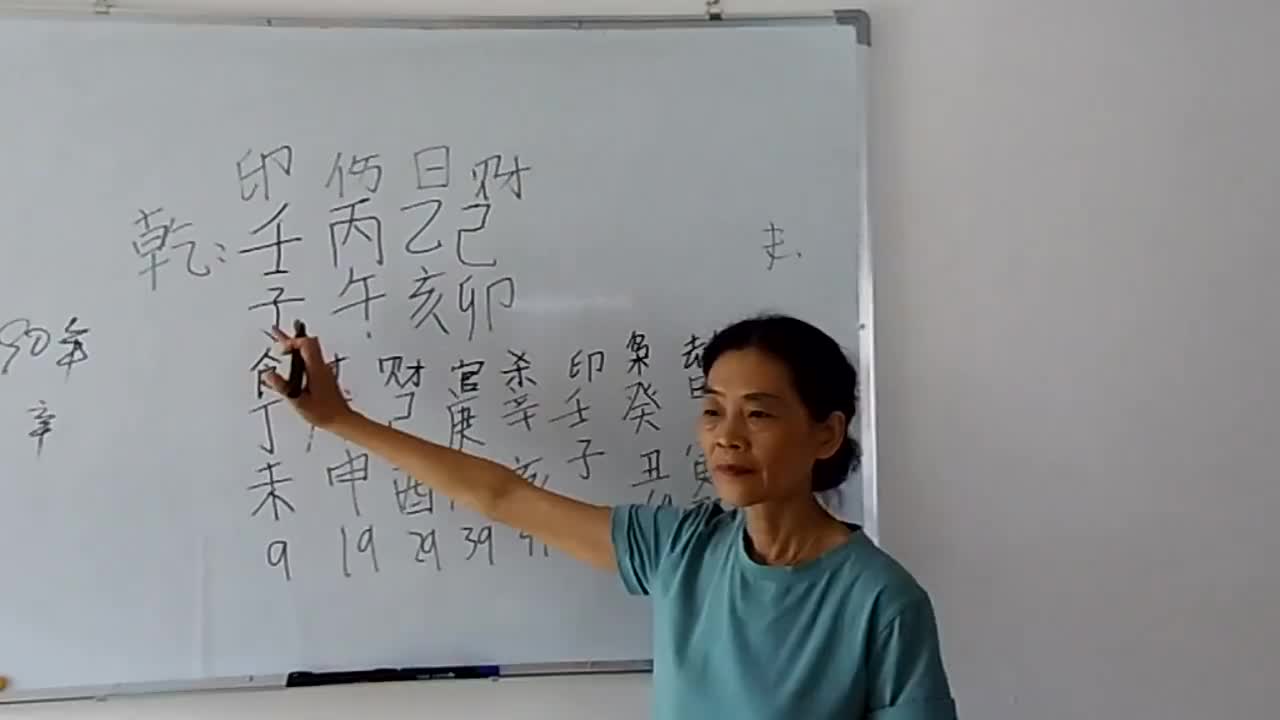 印 伤 日 财
乾: 壬 丙 乙 己
子 午 亥 卯
90年
辛
食 财 官 杀 印 枭 劫
丁 己 庚 辛 壬 癸
未 申 酉 亥 子 丑 寅
9 19 29 39